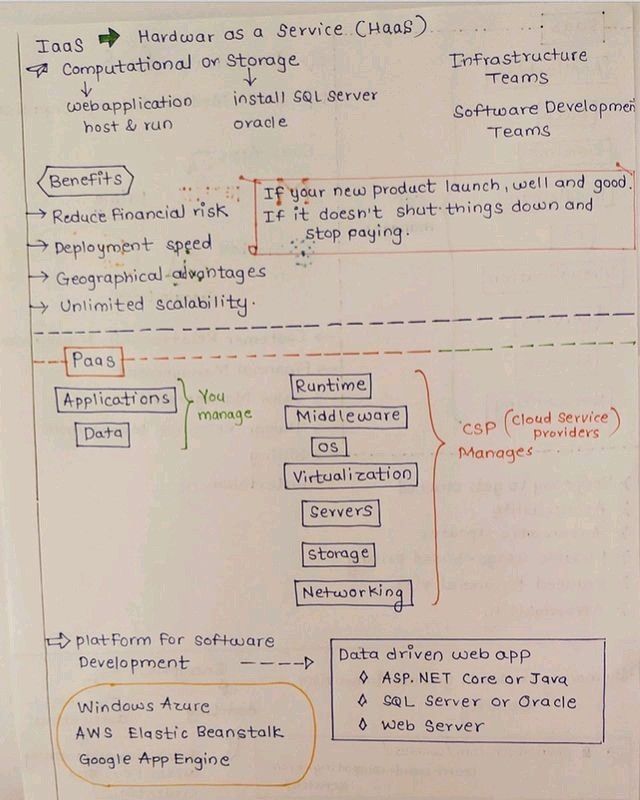 IaaS → Hardwar as a Service (HaaS)
Computational or Storage
↓ ↓
web application install SQL Server
host & run oracle
Infrastructure
Teams
Software Developmen
Teams
Benefits
→ Reduce financial risk
→ Deployment speed
→ Geographical advantages
→ Unlimited scalability.
If your new product launch, well and good.
If it doesn't shut things down and
stop paying.
Paas
Applications
Data
You
manage
Runtime
Middleware
OS
Virtualization
Servers
Storage
Networking
CSP (Cloud Service
providers)
Manages
⇒ platform for software
Development ----→
Windows Azure
AWS Elastic Beanstalk
Google App Engine
Data driven web app
◊ ASP.NET Core or Java
◊ SQL Server or Oracle
◊ Web Server